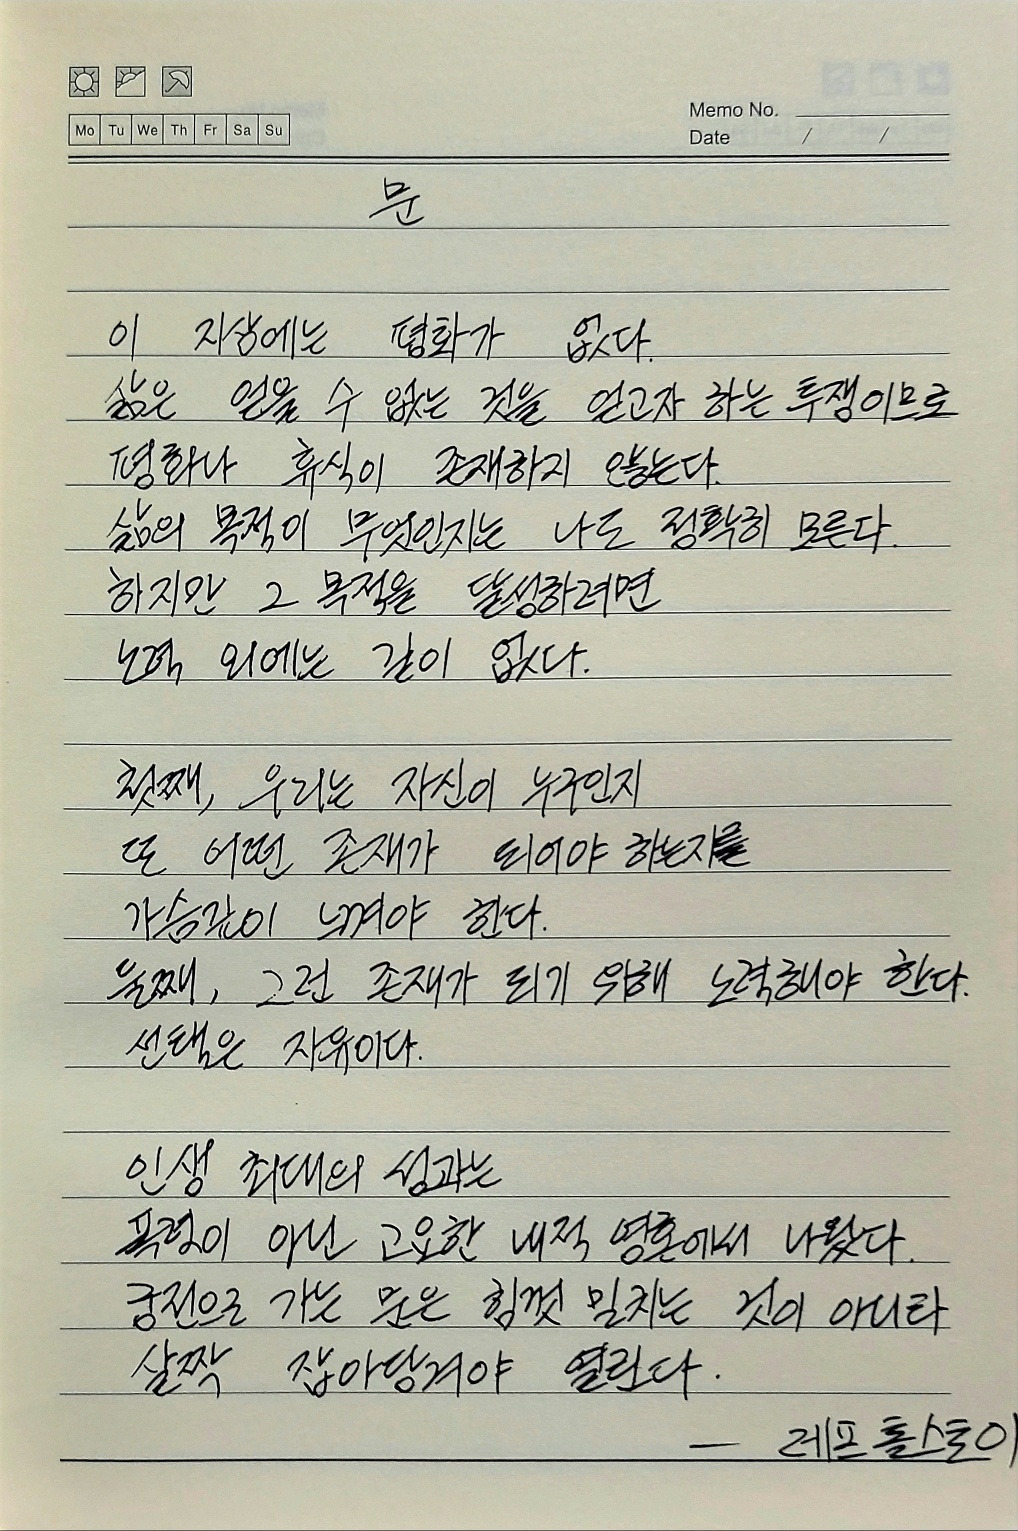 Mo Tu We Th Fr Sa Su
Memo No.
Date / /
문
이 지상에는 평화가 없다.
삶은 얻을 수 없는 것을 얻고자 하는 투쟁이므로
평화나 휴식이 존재하지 않는다.
삶의 목적이 무엇인지는 나도 정확히 모른다.
하지만 그 목적을 달성하려면
노력 외에는 길이 없다.
첫째, 우리는 자신이 누구인지
또 어떤 존재가 되어야 하는지를
가슴깊이 느껴야 한다.
둘째, 그런 존재가 되기 위해 노력해야 한다.
선택은 자유이다.
인생 최대의 성과는
폭력이 아닌 고요한 내적 영혼에서 나왔다.
궁전으로 가는 문은 힘껏 밀치는 것이 아니라
살짝 잡아당겨야 열린다.
— 레프 톨스토이